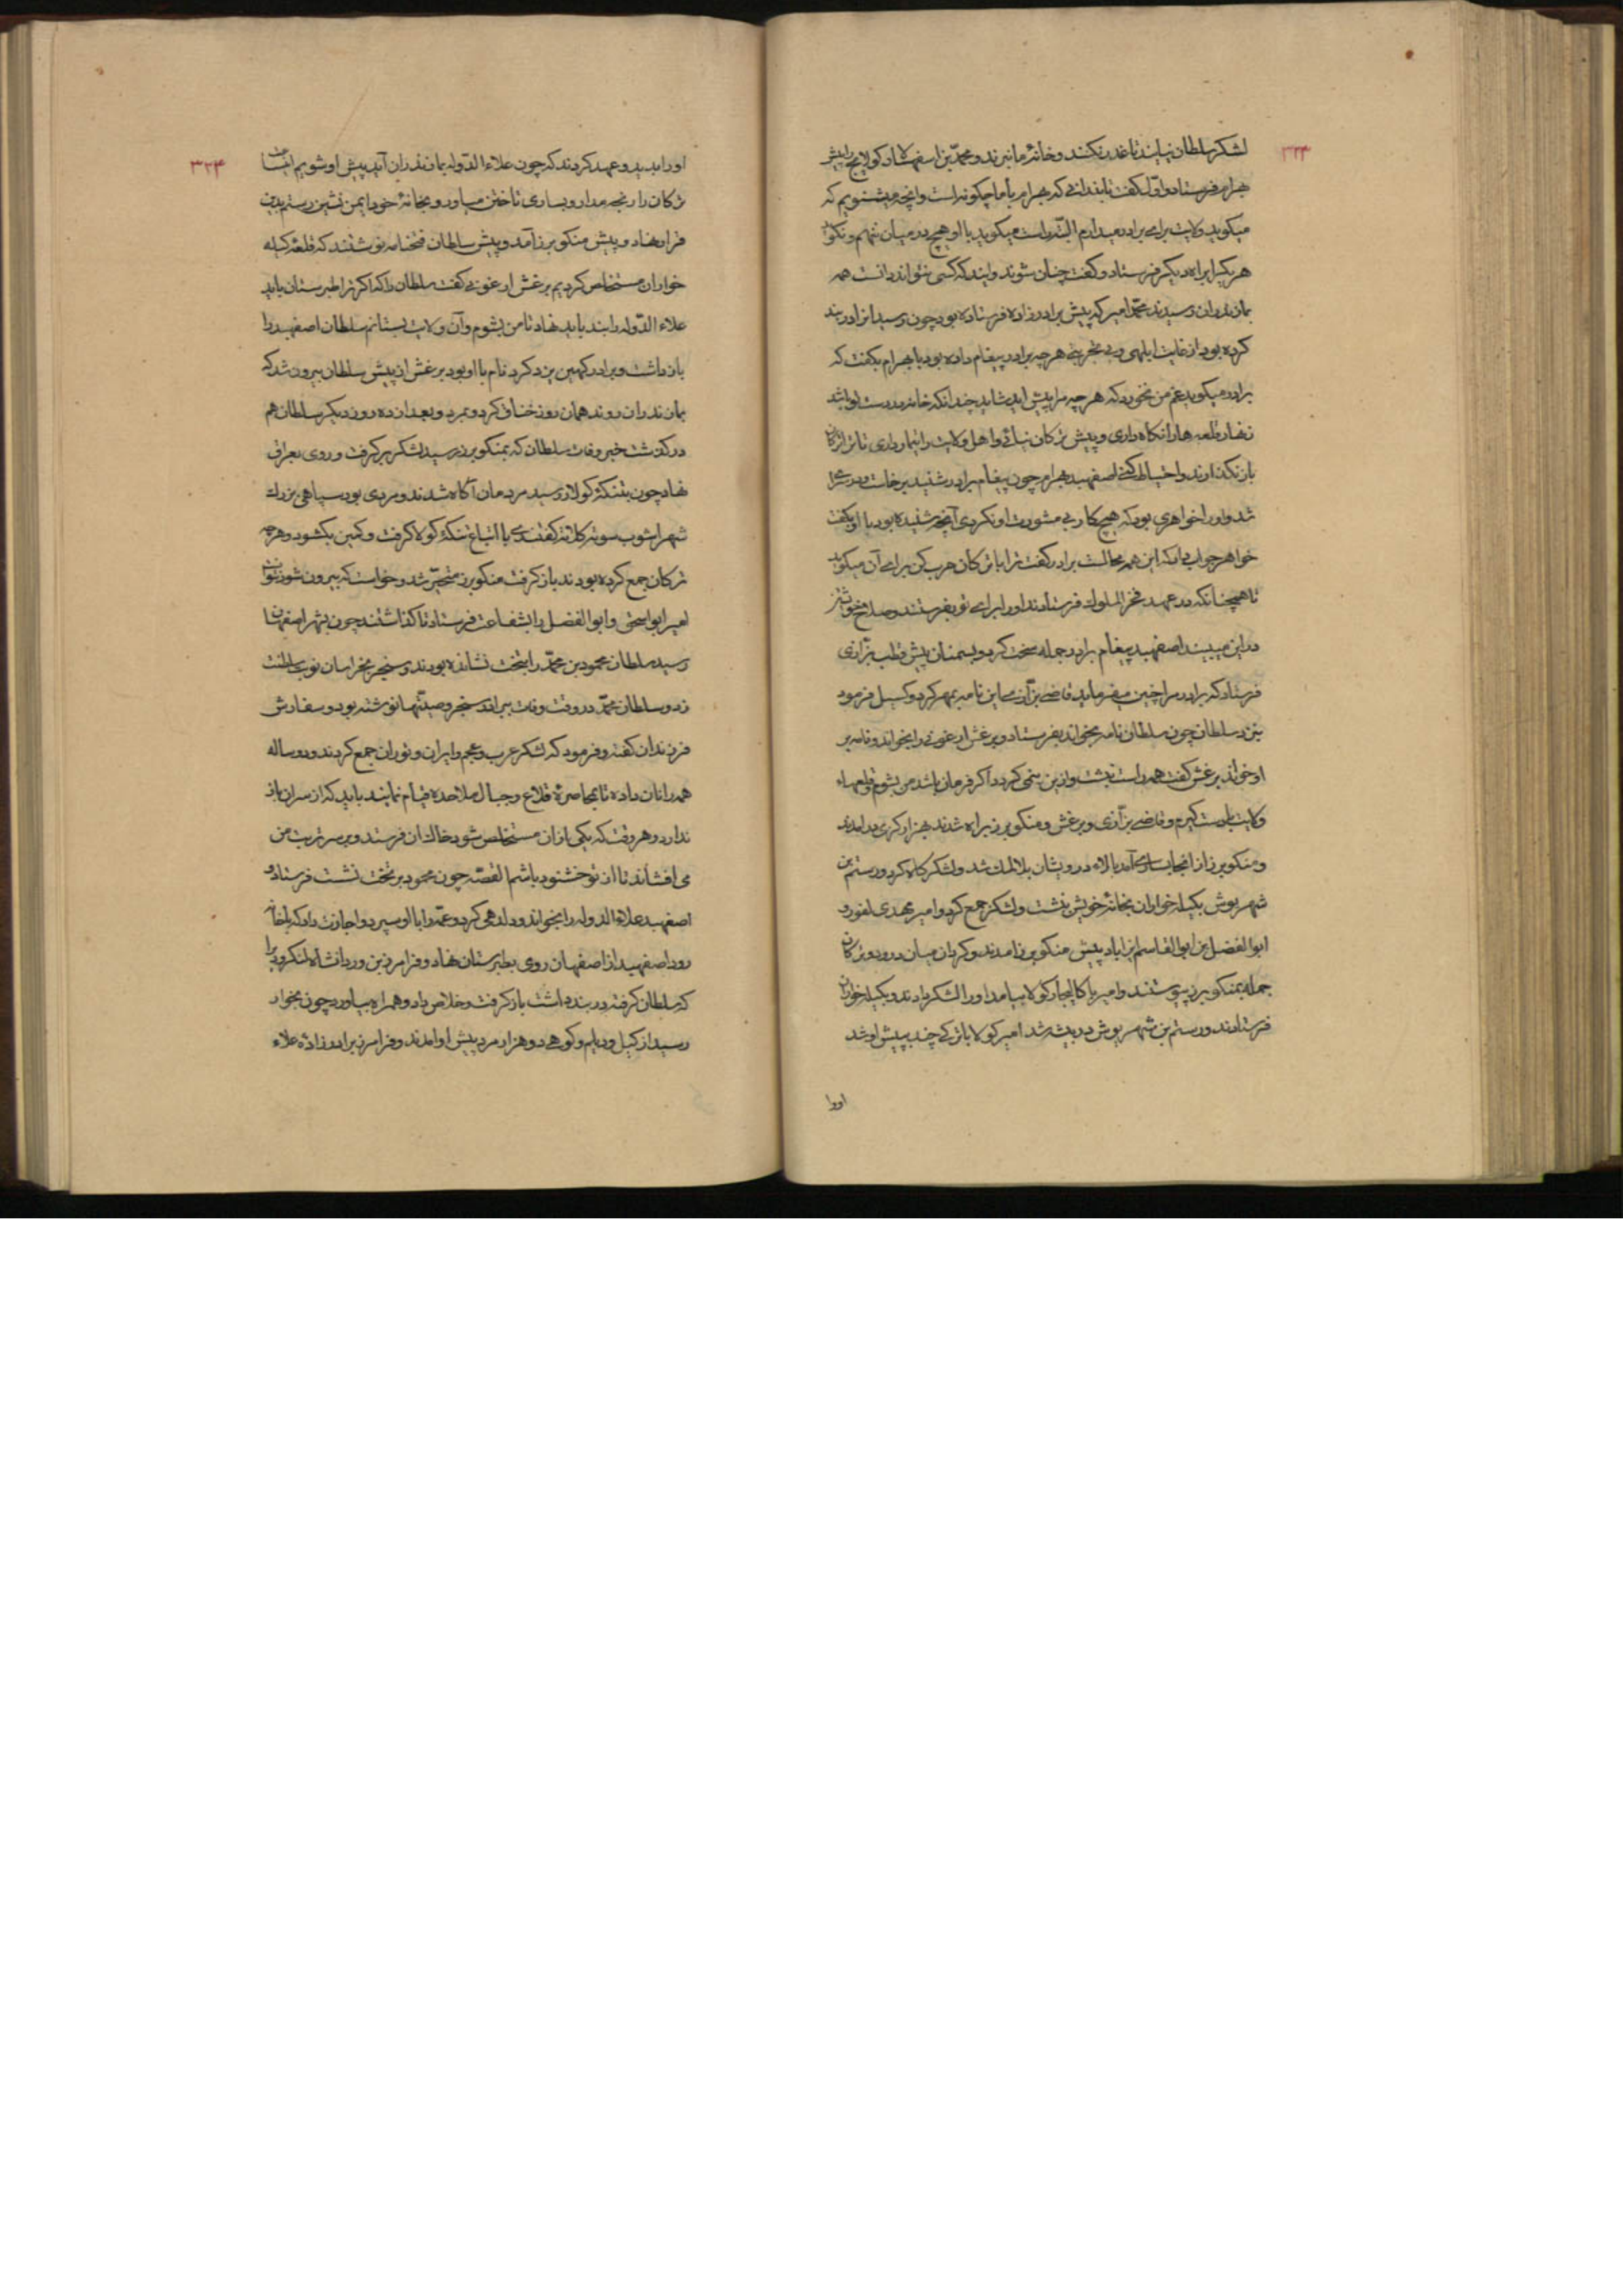 ۳۲۳
لشکر سلطان نیایند تا غدر نکنند و خانهٔ ما نبرند و محمّد بن اسفهسالار کولایج را پیش
بهرام فرستاد و اوّل گفت تا بدانی که بهرام با ما چگونه است و آنچه میشنویم که
میگوید ولایت برای برادر میدارم البتّه راست میگوید یا او هیچ در میان نتهم و نگوید
هر یکی را براه دیگر فرستاد و گفت چنان شوند و آیند که کسی نتواند دانست همه
بمازندران رسیدند محمّد امیرکه پیش برادرزاده فرستاده بود چون رسید او را در بند
کرده بود از غایت ابلهی و بی تجربتی هر چه برادر پیغام داده بود با بهرام بگفت که
برادر میگوید غم من نخورد که هر چه مرا پیش آید شاید چندانکه خانه در دست او باشد
زنهار قلعه ها را نگاه داری و پیش ترکان نیائی و اهل ولایت را تیمار داری تا ترا ترکان
باز نگذارند و احتیاط کنی اصفهبد بهرام چون پیغام برادر شنید برخاست و در سرای
شد و او را خواهری بود که هیچ کار بی مشورت او نکردی آنچه شنیده بود با او بگفت
خواهر جواب داد که این همه محالست برادر گفت ترا با ترکان حرب کن برای آن میگوید
تا همچنانکه در عهد فخر الملوک فرستادند او را برای تو بفرستند و صلاح خویشتن
در این میبیند اصفهبد پیغام برادر جمله سخت کرد و بسمنان پیش قطب بزّازی
فرستاد که برادر مرا چنین میفرماید قاضی بزّازی این نامه بمهر کرد و گسیل فرمود
بنزد سلطان چون سلطان نامه بخواند بفرستاد و برغش ارغونی را بخواند و نامه بر
او خواند برغش گفت همه راست نبشت و ازین سخن کردد اگر فرمان باشد من بشوم و قلعهاء
ولایت بدست گیرم و قاضی بزّازی و برغش و منکوبرز براه شدند بهزارگری در آمدند
و منکوبرز از آنجا بساری آمد بالاء درویشان بلالمک شد و لشکرگاه کرد و رستم بن
شهریوش بکیله خواران بخانهٔ خویش بنشست و لشکر جمع کرد و امیر مهدی لفور و
ابوالفضل بن ابوالقاسم ازاباد پیش منکوبرز آمدند و کردان میان دو رود و ترکان
جمله بمنکوبرز پیوستند و امیر باکالیجار کولا بیامد او را لشکر دادند و بکیله خواران
فرستادند و رستم بن شهریوش در بیشه شد امیر کولا با ترکی چند بپیش او شد
اورا
۳۲۴
او را بدید و عهد کردند که چون علاء الدّوله بمازندران آید پیش او شویم
ترکان را رنجه مدار و بساری تاختن میاور و بخانهٔ خود ایمن نشین رستم بدین
قرار نهاد و پیش منکوبرز آمد و پیش سلطان فتحنامه نوشتند که قلعهٔ کیله
خواران مستخلص کردیم برغش ارغونی گفت سلطان را که اگر ترا طبرستان باید
علاء الدّوله را بند باید نهاد تا من بشوم و آن ولایت بستانم سلطان اصفهبد را
بازداشت و برادر کهین یزدکرد نام با او بود برغش از پیش سلطان بیرون شد که
بمازندران روند همان روز خناق کرد و بمرد و بعد از ده روز دیگر سلطان هم
درگذشت خبر وفات سلطان که بمنکوبرز رسید لشکر برگرفت و روی بعراق
نهاد چون بتنگهٔ کولا رسید مردمان آگاه شدند و مردی بود سپاهی بزرک
شهراشوب سوته کلاته گفتندی با اتباع تنگهٔ کولا گرفت و کمین بگشود و هرچه
ترکان جمع کرده بودند باز گرفت منکوبرز متحیّر شد و خواست که بیرون شود نتوانست
امیر ابواسحق و ابوالفضل را بشفاعت فرستاد تا گذاشتند چون بشهر اصفهان
رسید سلطان محمود بن محمّد را بتخت نشانده بودند و سنجر بخراسان نوبت سلطنت
زد و سلطان محمّد در وقت وفات ببرادر سنجر وصیّتها نوشته بود و سفارش
فرزندان گفته و فرمود که لشکر عرب و عجم و ایران و توران جمع کردند و دو ساله
همه را نان داده تا بمحاصرهٔ قلاع و جبال ملاحده قیام نمایند باید که از سر آن باز
ندارد و هر وقت که یکی باز آن مستخلص شود خاک آن فرستد و بر سر تربت من
می افشاند تا از تو خشنود باشم القصّه چون محمود بر تخت نشست فرستاد و
اصفهبد علاء الدوله را بخواند و دلدهی کرد و عمّه را با او سپرد و اجازت داد که با خانه
رود اصفهبد از اصفهان روی بطبرستان نهاد و فرامرز بن وردانشاه لنکرودیرا
که سلطان گرفته در بند داشت باز گرفت و خلاص داد و همراه بیاورد چون بخوار
رسید از گیل و دیلم و کوهی دو هزار مرد پیش او آمدند و فرامرز برادرزادهٔ علاء